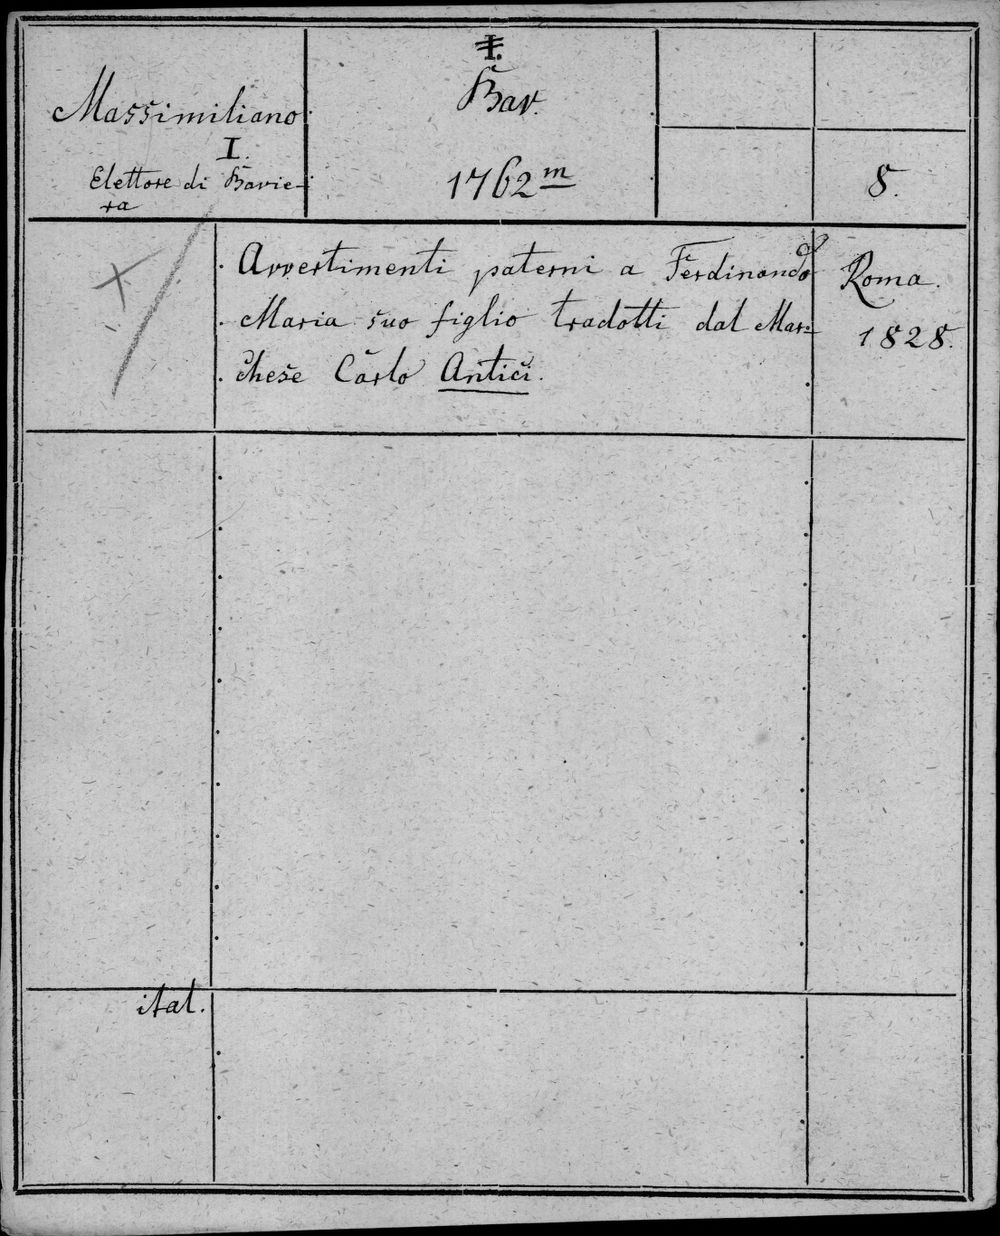 Massimiliano
I.
Elettore di Bavie-
ra
I.
Bav.
1762 m
8.
Avvertimenti paterni a Ferdinando
Maria suo figlio tradotti dal Mar-
chese Carlo Antici.
Roma.
1828.
ital.